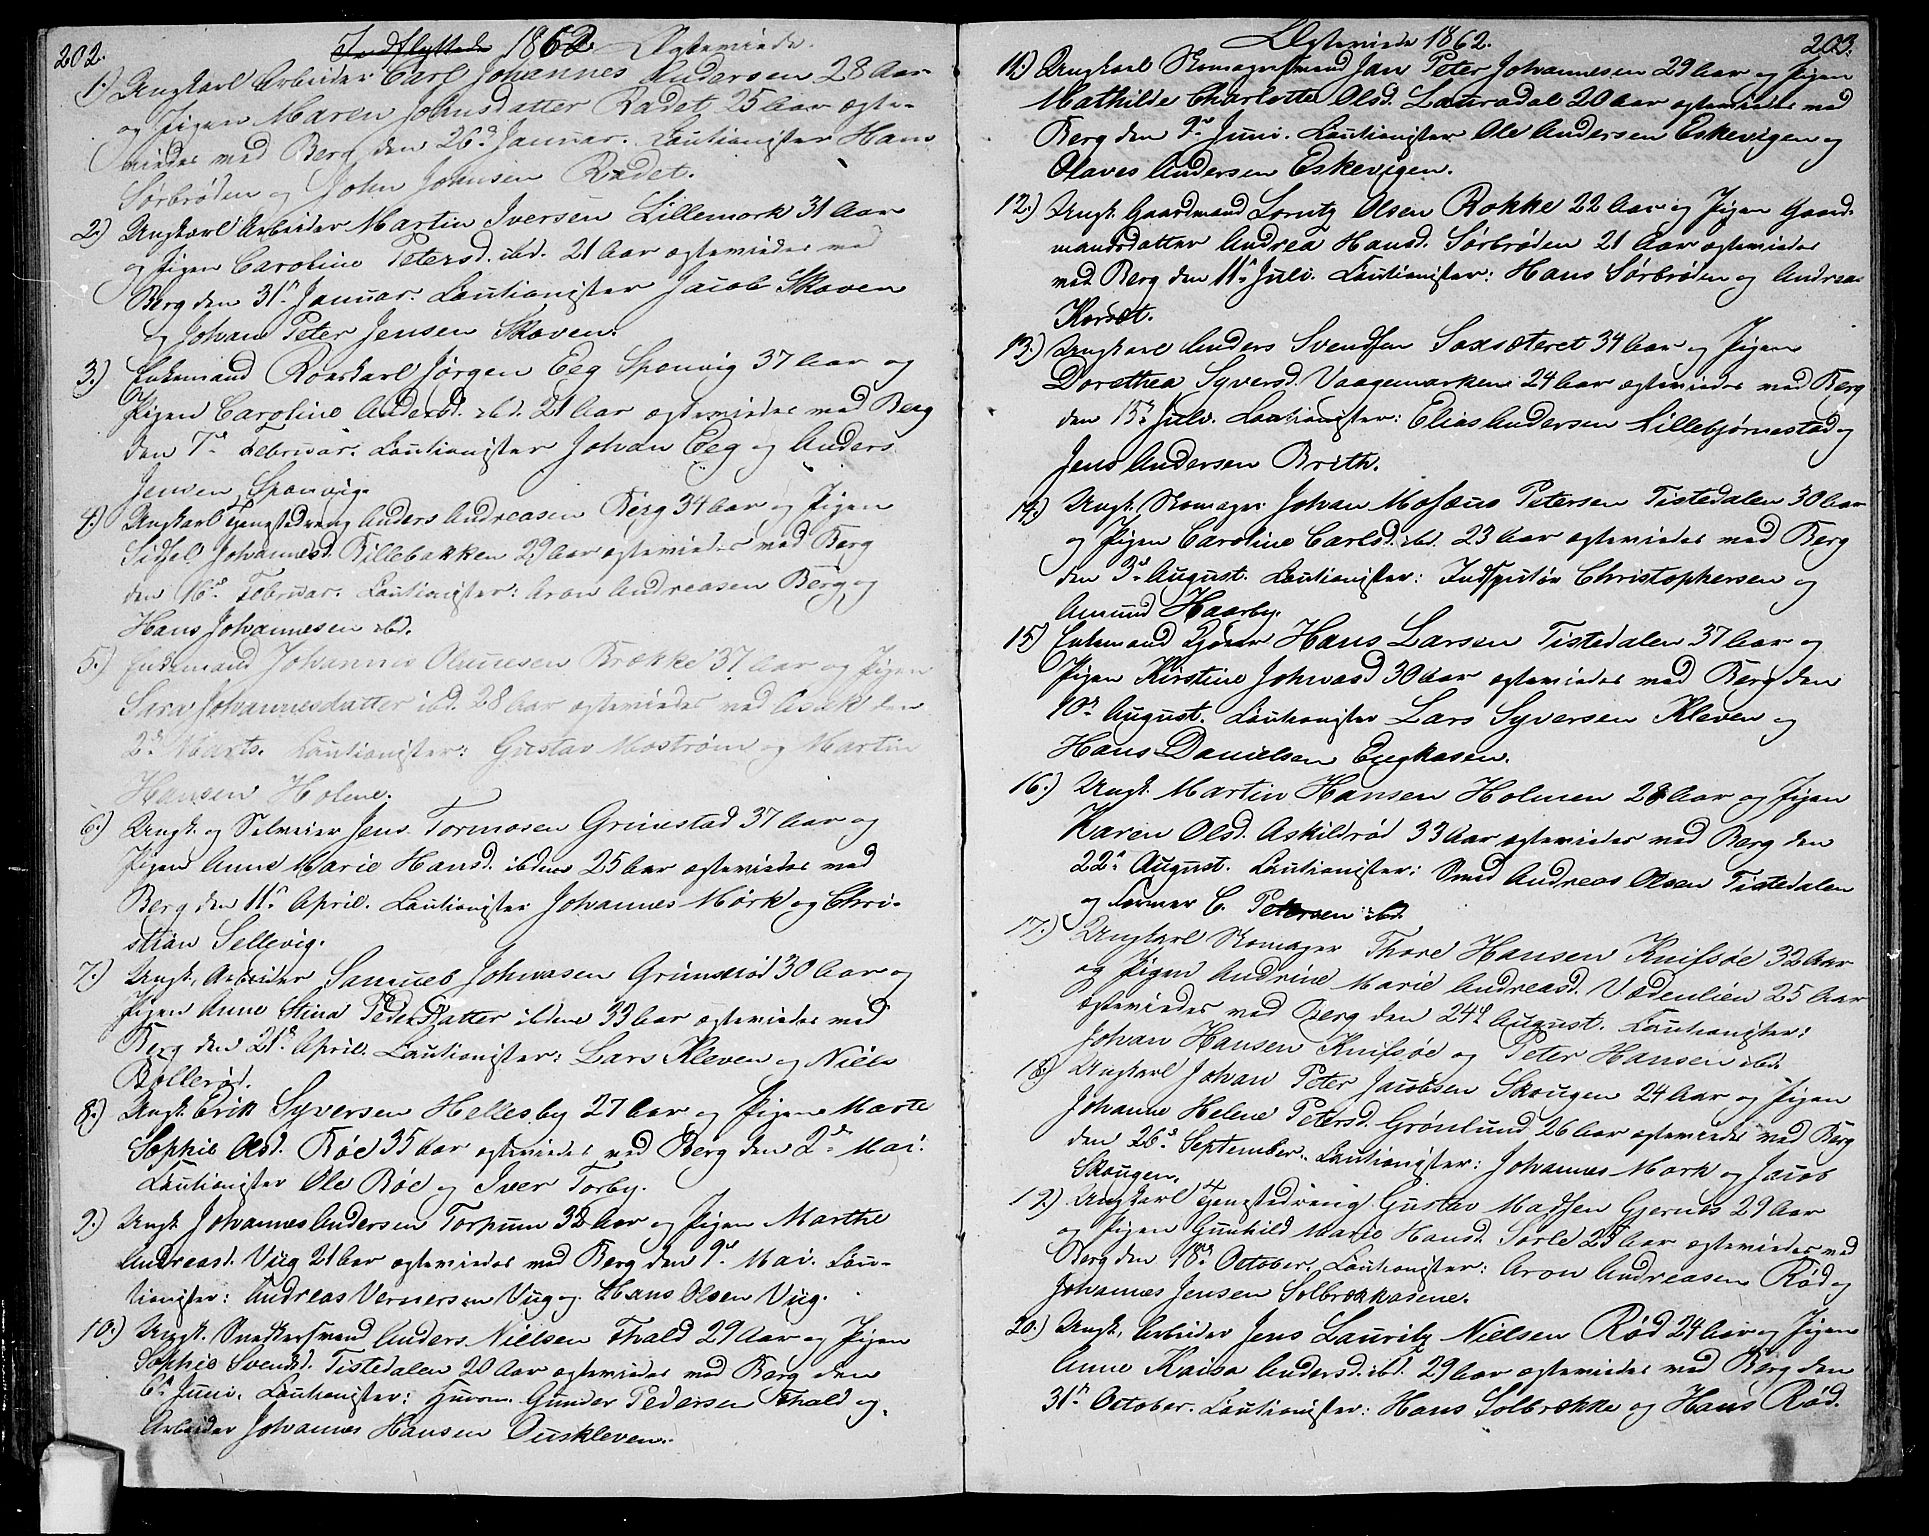 202.
Indflyttede 1862. Ægteviede.
1.) Ungkarl Arbeider Carl Johannes Andersen 28 Aar
og Pigen Maren Johnsdatter Rødet 25 Aar ægte-
viedes ved Berg den 26d Januar. Cautionister Hans
Sørbrøden og John Johnsen Rødet.
2.) Ungkarl Arbeider Martin Iversen Lillemork 31 Aar
og Pigen Caroline Petersd. ibd. 21 Aar ægteviedes ved
Berg den 31d Januar. Cautionister Jacob Skoven
og Johan Peter Jensen Skoven.
3.) Enkemand Roerskarl Jørgen Eeg Sponvig 37 Aar og
Pigen Caroline Andersd. ibd. 21 Aar ægteviedes ved Berg
den 7d Februar. Cautionister Johan Eeg og Anders
Jensen Sponvig.
4.) Ungkarl Tjenestedreng Anders Andreasen Berg 34 Aar og Pigen
Sidsel Johannesd. Killebakken 29 Aar ægteviedes ved Berg
den 16d Februar. Cautionister: Aron Andreasen Berg og
Hans Johannesen ibd.
5.) Enkemand Johannes Olaussen Brække 37 Aar og Pigen
Sara Johannesdatter ibd. 28 Aar ægteviedes ved Asak den
2d Marts. Cautionister: Gustav Mostrøm og Martin
Hansen Holme.
6.) Ungk. og Selveier Jens Tormosen Grimstad 37 Aar og
Pigen Anne Marie Hansd. ibdm 25 Aar ægteviedes ved
Berg den 11d April. Cautionister Johannes Mørk og Chri-
stian Sellevig.
7.) Ungk. Arbeider Samuel Johnasen Grimsrød 30 Aar og
Pigen Anne Stina Pedersdatter ibdm 33 Aar ægteviedes ved
Berg den 21d April. Cautionister: Lars Kleven og Niels
Bøllerød.
8.) Ungk. Erik Syversen Hellesby 27 Aar og Pigen Marte
Sophie Olsd. Røe 35 Aar ægteviedes ved Berg den 2d Mai.
Cautionister Ole Røe og Iver Torby.
9.) Ungk. Johannes Andersen Torpum 32 Aar og Pigen Marthe
Andreasd. Vug 21 Aar ægteviedes ved Berg den 9d Mai. Cau-
tionister: Andreas Vernersen Vug og Hans Olsen Vug.
10.) Ungk. Snedkersvend Anders Nielsen Fhald 29 Aar og Pigen
Sophie Svendsd. Tistedalen 20 Aar ægteviedes ved Berg den
6d Juni. Cautionister: Huusm. Gunder Pedersen Fhald og
Arbeider Johannes Hansen Ouskleven.
Ægteviede 1862.
203.
11.) Ungkarl Skomagersvend Jan Peter Johannesen 29 Aar og Pigen
Mathilde Charlotte Olsd. Lauradal 20 Aar ægteviedes ved
Berg den 9d Juni. Cautionister Ole Andersen Eskevigen og
Olaves Andersen Eskevigen.
12.) Ungk. Gaardmand Lorntz Olsen Rokke 22 Aar og Pigen Gaard-
mandsdatter Andrea Hansd. Sørbrøden 21 Aar ægteviedes
ved Berg den 11d Juli. Cautionister: Hans Sørbrøden og Andreas
Korsæt.
13.) Ungkarl Anders Svendsen Saxsæteret 34 Aar og Pigen
Dorethea Syversd. Vaagemarken 24 Aar ægteviedes ved Berg
den 15d Juli. Cautionister: Elias Andersen Lillebjørnestad og
Jens Andersen Brith.
14.) Ungk. Skomager Johan Mosæus Petersen Tistedalen 30 Aar
og Pigen Caroline Carlsd. ibd. 23 Aar ægteviedes ved Berg
den 3d August. Cautionister: Inspektør Christophersen og
Amund Haarby.
15.) Enkemand Kjører Hans Larsen Tistedalen 37 Aar og
Pigen Kirstine Johnasd 30 Aar ægteviedes ved Berg den
10d August. Cautionister Lars Syversen Kleven og
Hans Danielsen Engkasen.
16.) Ungk. Martin Hansen Holmen 28 Aar og Pigen
Karen Olsd. Askildrød 33 Aar ægteviedes ved Berg den
22d August. Cautionister: Smed Andreas Olsen Tistedalen
og Former C. Petersen ibd.
17.) Ungkarl Skomager Thore Hansen Knifsøe 32 Aar
og Pigen Andrine Marie Andreasd. Vedenlien 25 Aar
ægteviedes ved Berg den 24d August. Cautionister:
Johan Hansen Knifsøe og Peter Hansen ibd.
18.) Ungkarl Johan Peter Jacobsen Skougen 24 Aar og Pigen
Johanne Helene Petersd. Grønlund 26 Aar ægteviedes ved Berg
den 26d September. Cautionister: Johannes Mork og Jacob
Skougen.
19.) Ungkarl Tjenestedreng Gustav Madsen Gjernes 29 Aar
og Pigen Gunhild Marie Hansd. Sørle 25 Aar ægteviedes ved
Berg den 18d October. Cautionister: Aron Andreasen Rød og
Johannes Jensen Solbrækkasene.
20.) Ungk. Arbeider Jens Lauritz Nielsen Rød 24 Aar og Pigen
Anne Kaisa Andersd. ibd. 29 Aar ægteviedes ved Berg den
31d October. Cautionister: Hans Solbrække og Hans Rød.